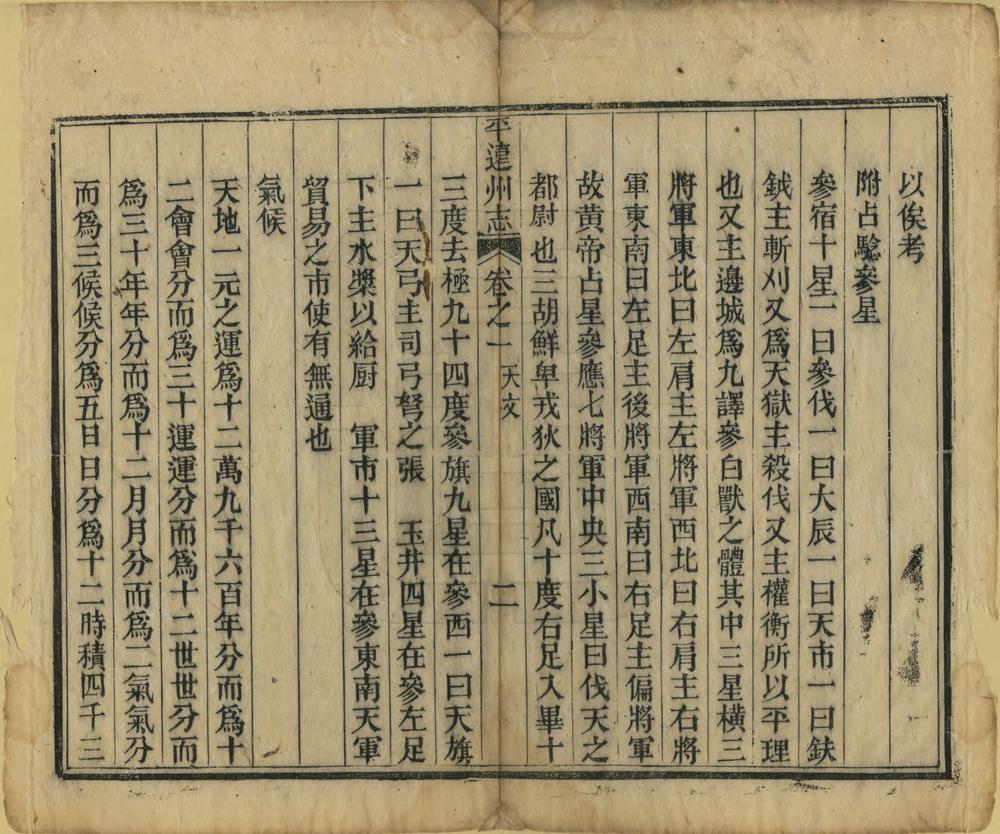 以俟考
附占驗參星
參宿十星一曰參伐一曰大辰一曰天市一曰鈇
鉞主斬刈又爲天獄主殺伐又主權衡所以平理
也又主邊城爲九譯參白獸之體其中三星橫三
將軍東北曰左肩主左將軍西北曰右肩主右將
軍東南曰左足主後將軍西南曰右足主偏將軍
故黃帝占星參應七將軍中央三小星曰伐天之
都尉也三胡鮮卑戎狄之國凡十度右足入畢十
平遠州志 卷之一 天文 二
三度去極九十四度參旗九星在參西一曰天旗
一曰天弓主司弓弩之張 玉井四星在參左足
下主水漿以給厨 軍市十三星在參東南天軍
貿易之市使有無通也
氣候
天地一元之運爲十二萬九千六百年分而爲十
二會會分而爲三十運運分而爲十二世世分而
爲三十年年分而爲十二月月分而爲二氣氣分
而爲三候候分爲五日日分爲十二時積四千三